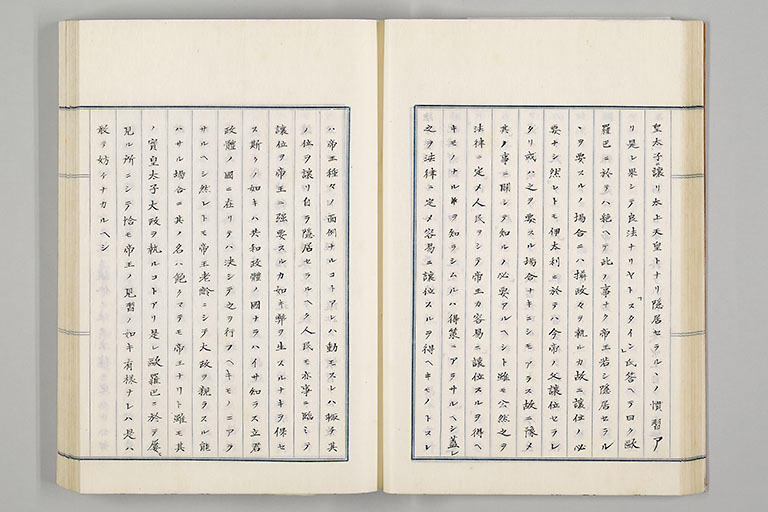 皇太子ニ讓リ太上天皇トナリ隱居セラルヽノ慣習ア
リ是レ果シテ良法ナリヤト「スタイン」氏答ヘテ曰ク歐
羅巴ニ於テハ絶ヘテ此ノ事ナク帝王若シ隱居セラル
ヽヲ要スルノ場合ニハ攝政々ヲ執ルカ故ニ讓位ノ必
要ナシ然レトモ伊太利ニ於テハ今帝ノ父讓位セラレ
タリ或ハ之ヲ要スル場合ナキニシモアラス故ニ豫メ
其ノ事ニ關シテ知ルノ必要アルヘシト雖モ公然之ヲ
法律ニ定メ人民ヲシテ帝王カ容易ニ讓位スルヲ得ヘ
キモノナルヿヲ知ラシムルハ得策ニアラサルヘシ蓋シ
之ヲ法律ニ定メ容易ニ讓位スルヲ得ヘキモノトスレ
ハ帝王種々ノ面倒ナルコトアレハ動モスレハ輙チ其
ノ位ヲ讓リ自ラ隱居セラルヘク人民モ亦事ニ臨ミテ
讓位ヲ帝王ニ強要スルカ如キ弊ヲ生スルナキヲ保セ
ス斯クノ如キハ共和政體ノ國ナラハイサ知ラス立君
政體ノ國ニ在リテハ決シテ之ヲ行フヘキモノニアラ
サルヘシ然レトモ帝王老齡ニシテ大政ヲ親ラスル能
ハサル場合ニ其ノ名ハ飽クマテモ帝王ナリト雖モ其
ノ實皇太子大政ヲ執ルコトアリ是レ歐羅巴ニ於テ屢
見ル所ニシテ恰モ帝王ノ見習ノ如キ有樣ナレハ是ハ
敢テ妨ケナカルヘシ